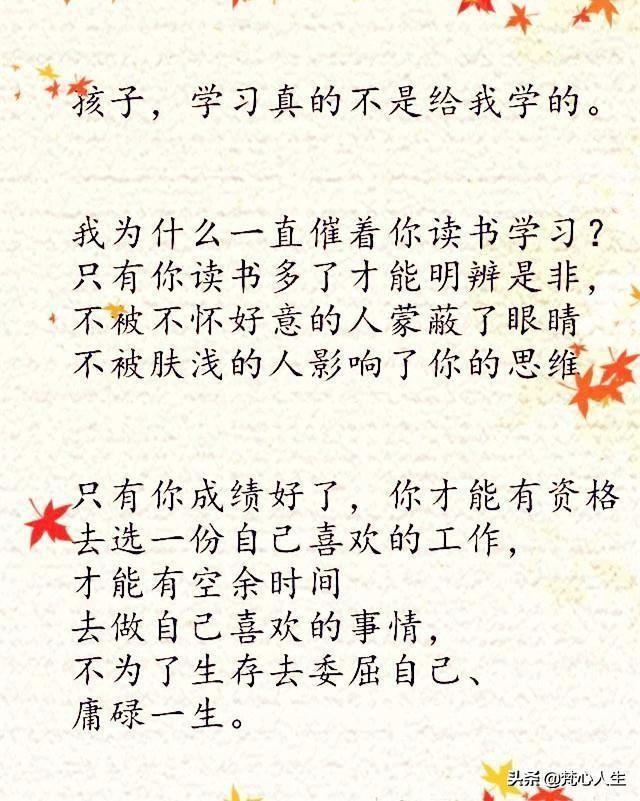 孩子，学习真的不是给我学的。
我为什么一直催着你读书学习？
只有你读书多了才能明辨是非，
不被不怀好意的人蒙蔽了眼睛
不被肤浅的人影响了你的思维
只有你成绩好了，你才能有资格
去选一份自己喜欢的工作，
才能有空余时间
去做自己喜欢的事情，
不为了生存去委屈自己、
庸碌一生。
头条 @梵心人生